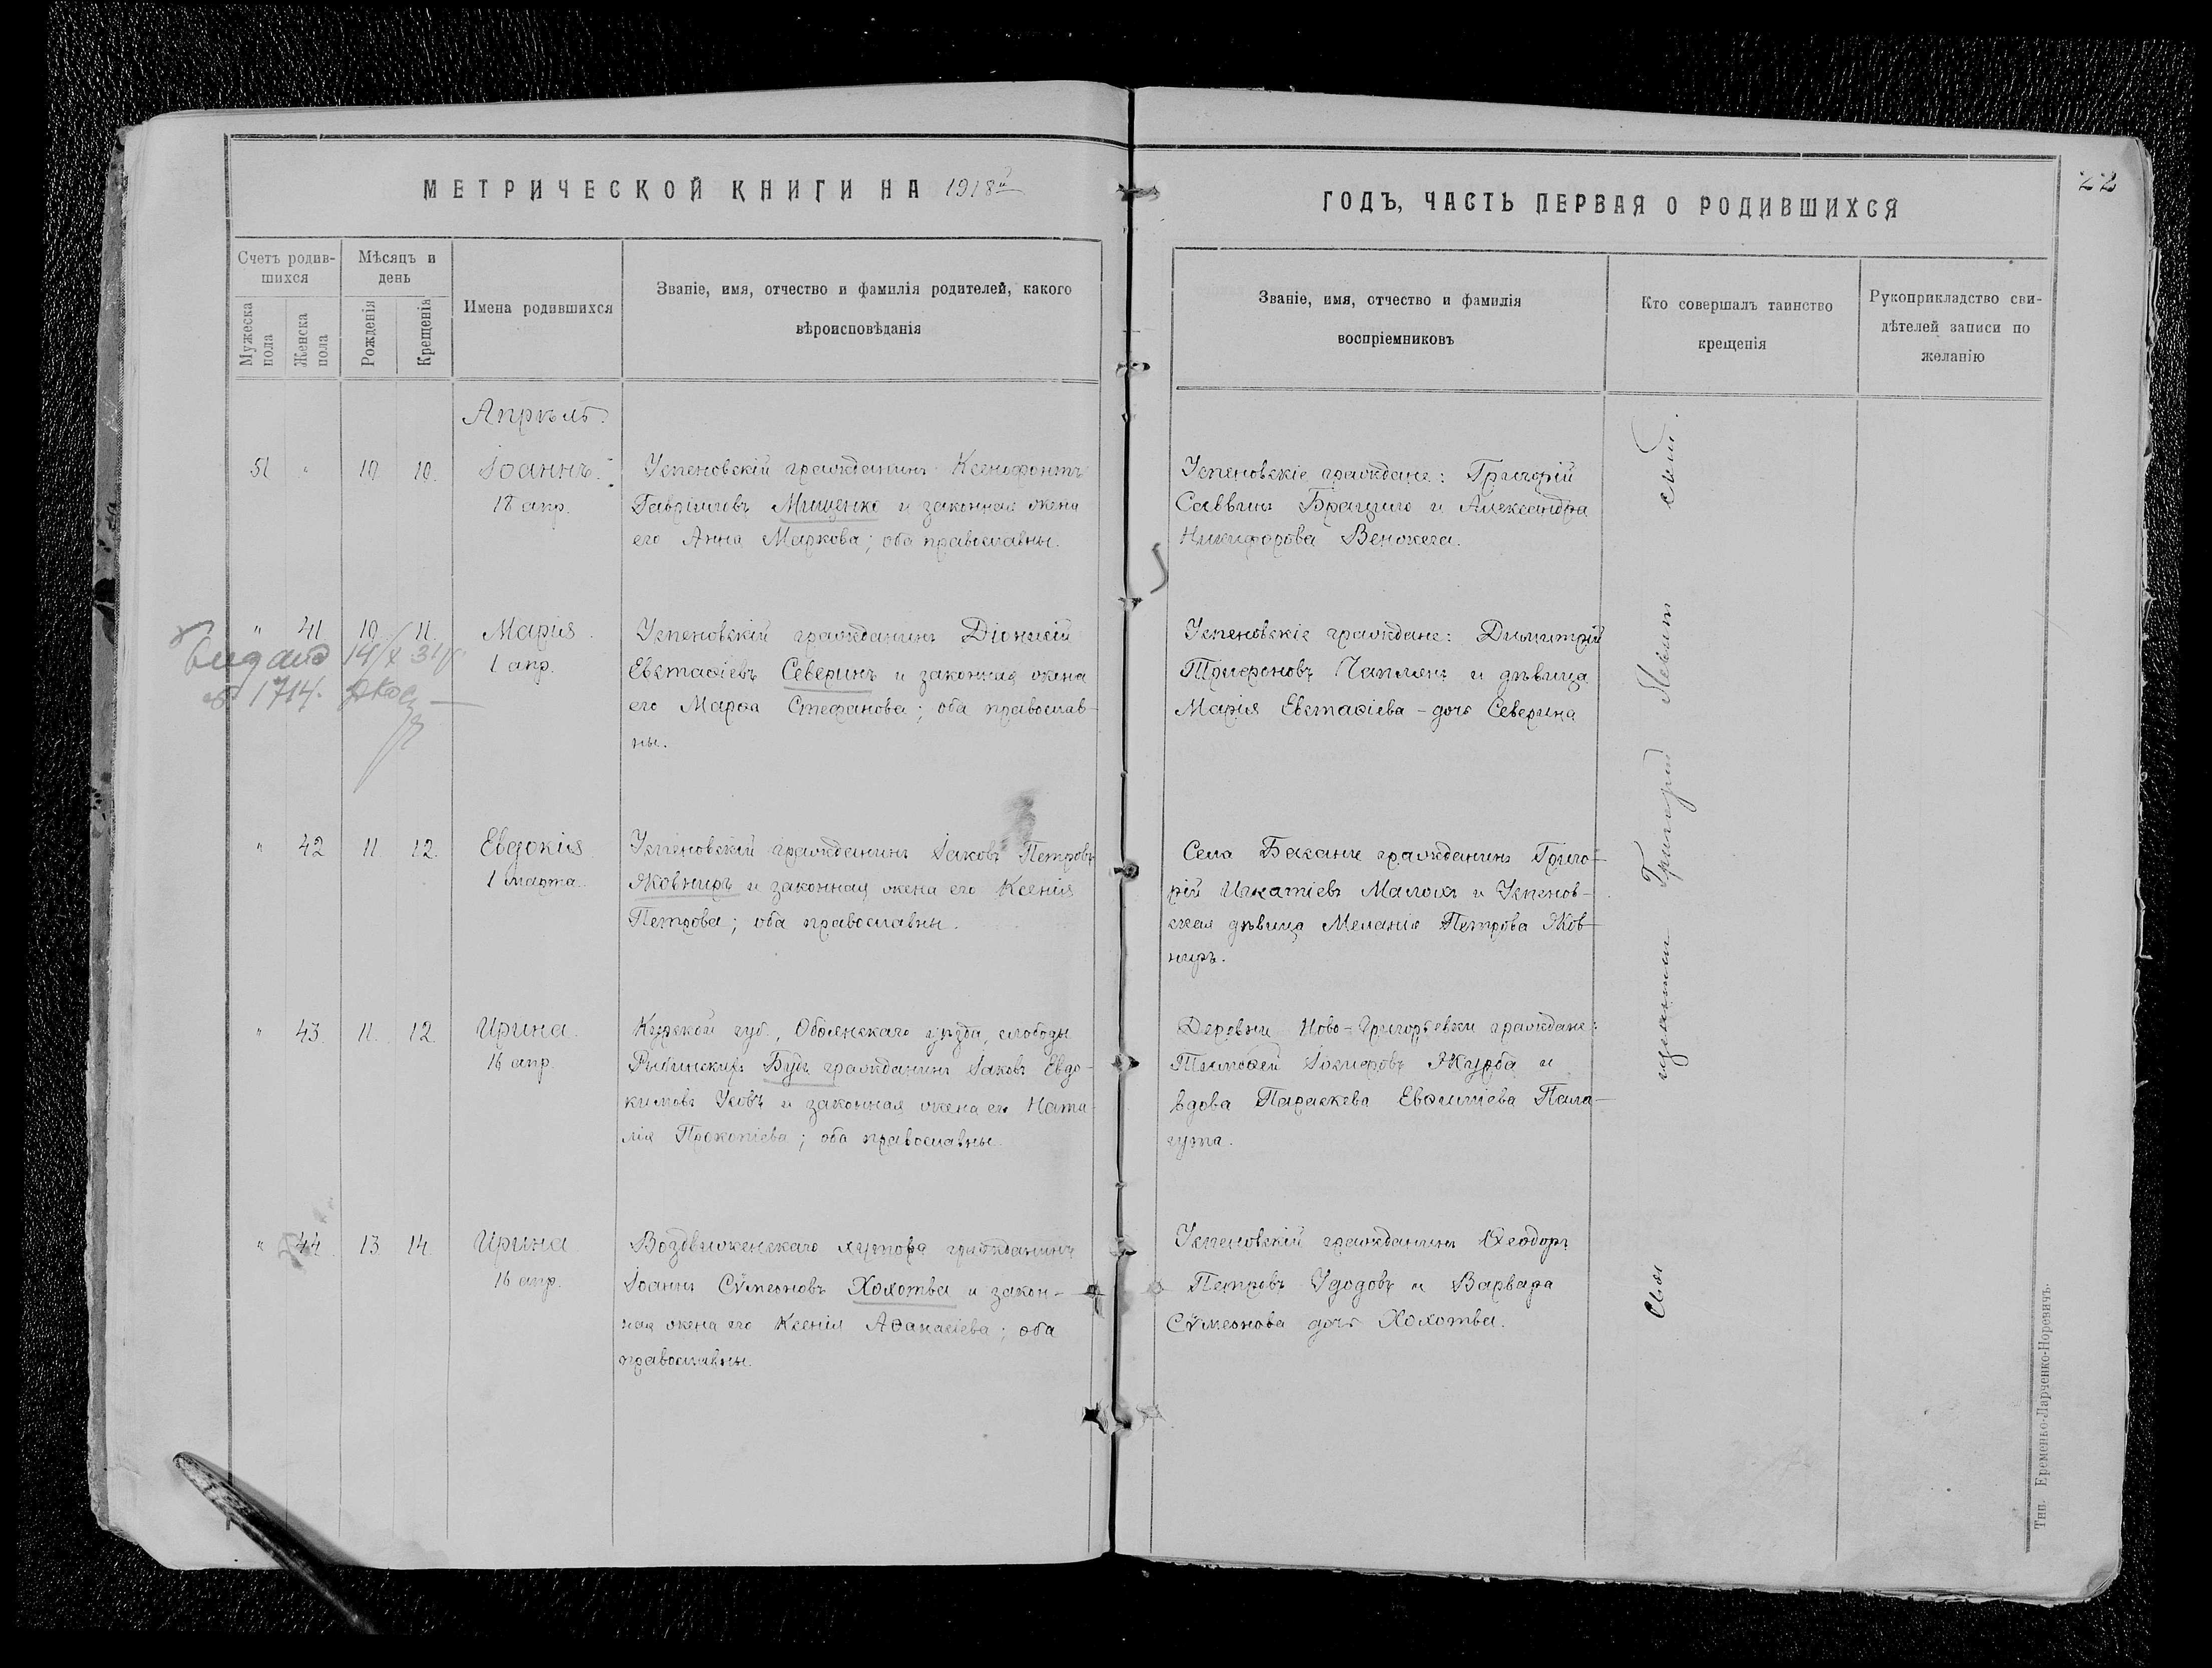 МЕТРИЧЕСКОЙ КНИГИ НА 1918й
ГОДЪ, ЧАСТЬ ПЕРВАЯ О РОДИВШИХСЯ
22
Счетъ родив-
шихся
Мужеска
пола
Женска
пола
Мѣсяцъ и
день
Рожденія
Крещенія
Имена родившихся
Званіе, имя, отчество и фамилія родителей, какого
вѣроисповѣданія
Званіе, имя, отчество и фамилія
воспріемниковъ
Кто совершалъ таинство
крещенія
Рукоприкладство сви-
дѣтелей записи по
желанію
Апрѣль.
51 " 10 10. Іоаннъ.
18 апр.
Успеновскій гражданинъ Ксенофонтъ
Гавріиловъ Мищенко и законная жена
его Анна Маркова; оба православны.
Успеновскіе граждане: Григорій
Саввинъ и Александра
Никифорова Венжега.
" 41 10. 11. Марія.
1 апр.
Успеновскій гражданинъ Діонисій
Евстафіевъ Северинъ и законная жена
его Марѳа Стефанова; оба православ-
ны.
Успеновскіе граждане: Димитрій
Трифоновъ Чаплянъ и дѣвица
Марія Евстафіева - дочь Северина
14/X 31
1714.
" 42 11 12. Евдокія
1 марта.
Успеновскій гражданинъ Іаковъ Петровъ
Яковниръ и законная жена его Ксенія
Петрова; оба православны.
Села гражданинъ Григо-
рій Игнатіевъ Малохъ и Успенов-
ская дѣвица Меланія Петрова Яков-
ниръ.
" 43. 11. 12. Ирина.
16 апр.
Курской губ., Обоянскаго уѣзда, слободы
Рыбинскихъ Будъ гражданинъ Іаковъ Евдо-
кимовъ Усовъ и законная жена его Ната-
лія Прокопіева; оба православны.
Деревни Ново-Григорьевки граждане:
Тимоѳей Іосифовъ Журба и
вдова Параскева Евѳиміева Пала-
гута.
" 44. 13 14. Ирина
16 апр.
Воздвиженскаго хутора гражданинъ
Іоаннъ Сѵмеоновъ Холотва и закон-
ная жена его Ксенія Аѳанасіева; оба
православны.
Успеновскій гражданинъ Ѳеодоръ
Петровъ Удодовъ и Варвара
Сѵмеонова дочь Холотва.
Григорій Левит
Тип. Еременко-Ларченко-Норевичъ.